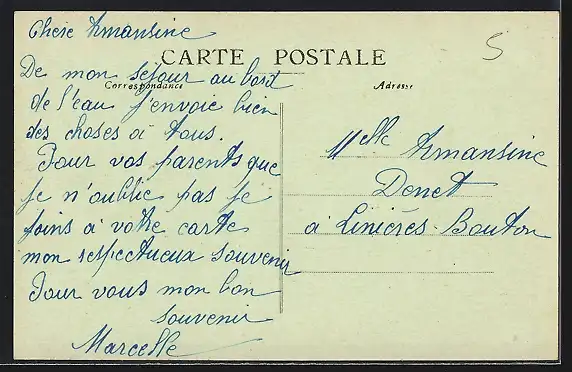 Chere Armansine
CARTE POSTALE
Correspondance
Adresse
De mon séjour au bort
de l'eau j'envoie bien
des choses a tous.
Pour vos parents que
je n'oublie pas je
joins a votre carte
mon respectueux souvenir
Pour vous mon bon
souvenir
Marcelle
5
Melle Armansine
Denet
à Linières-Bouton